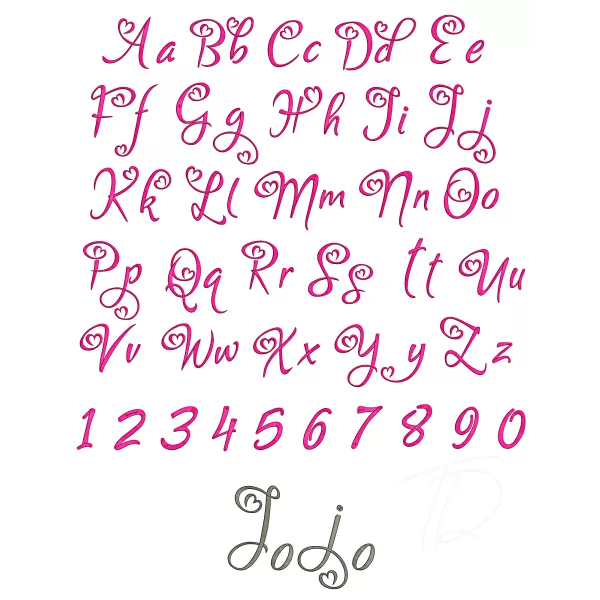 Aa Bb Cc Dd Ee
Ff Gg Hh Ii Jj
Kk Ll Mm Nn Oo
Pp Qq Rr Ss Tt Uu
Vv Ww Xx Yy Zz
1 2 3 4 5 6 7 8 9 0
TD
Jojo